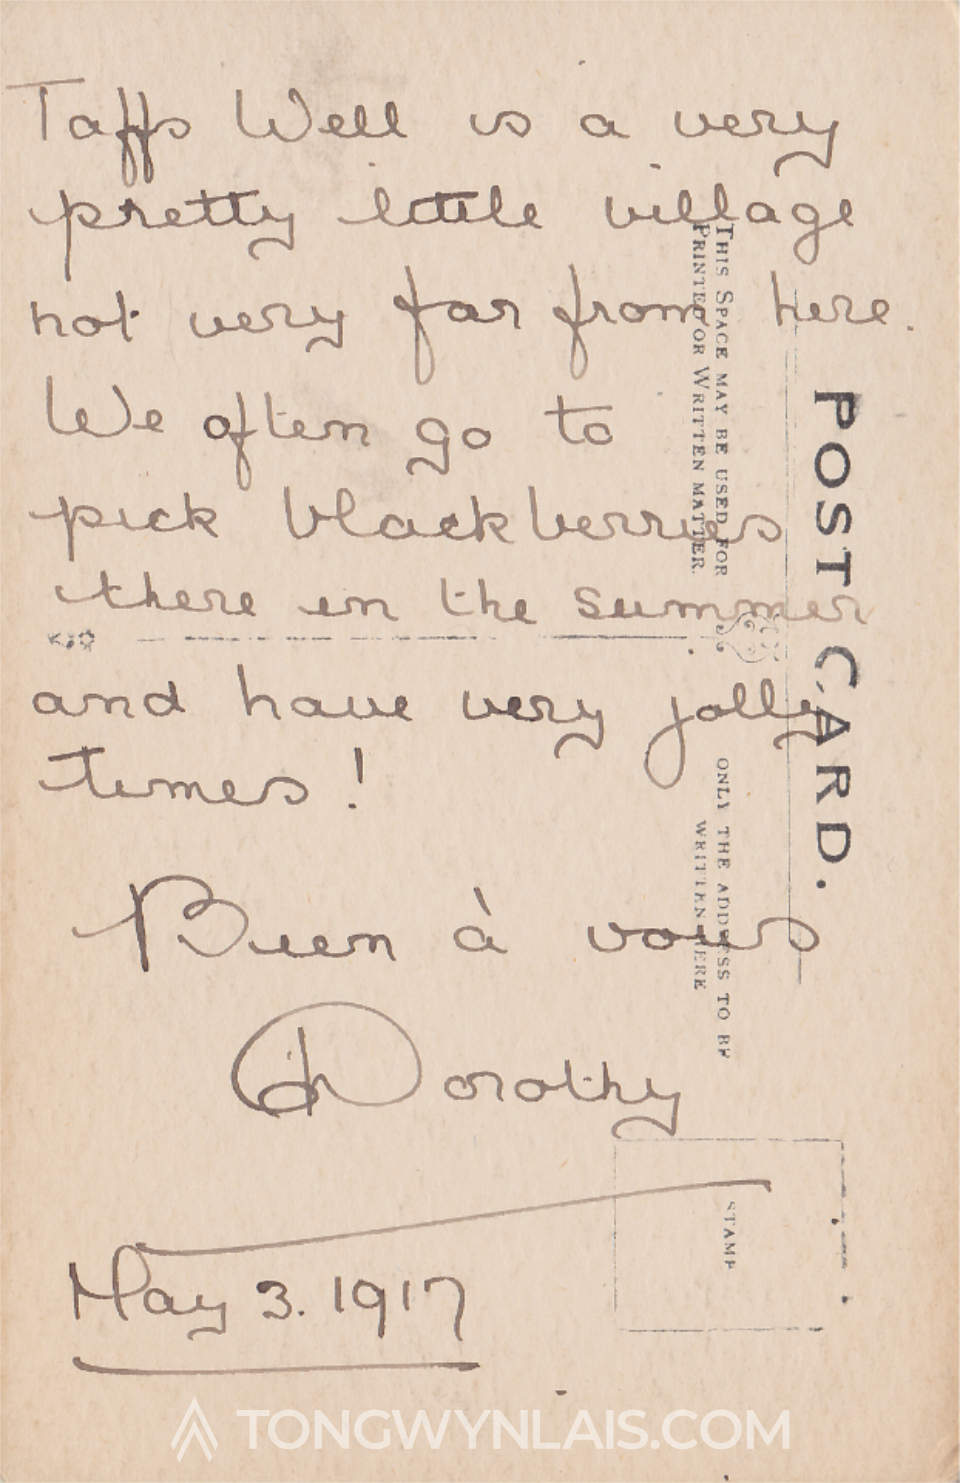 Taffs Well is a very
pretty little village
not very far from here.
We often go to
pick blackberries
there in the summer
and have very jolly
times!
Bien à vous
Dorothy
May 3. 1917
POST CARD.
THIS SPACE MAY BE USED FOR
PRINTED OR WRITTEN MATTER.
ONLY THE ADDRESS TO BE
WRITTEN HERE
STAMP
TONGWYNLAIS.COM